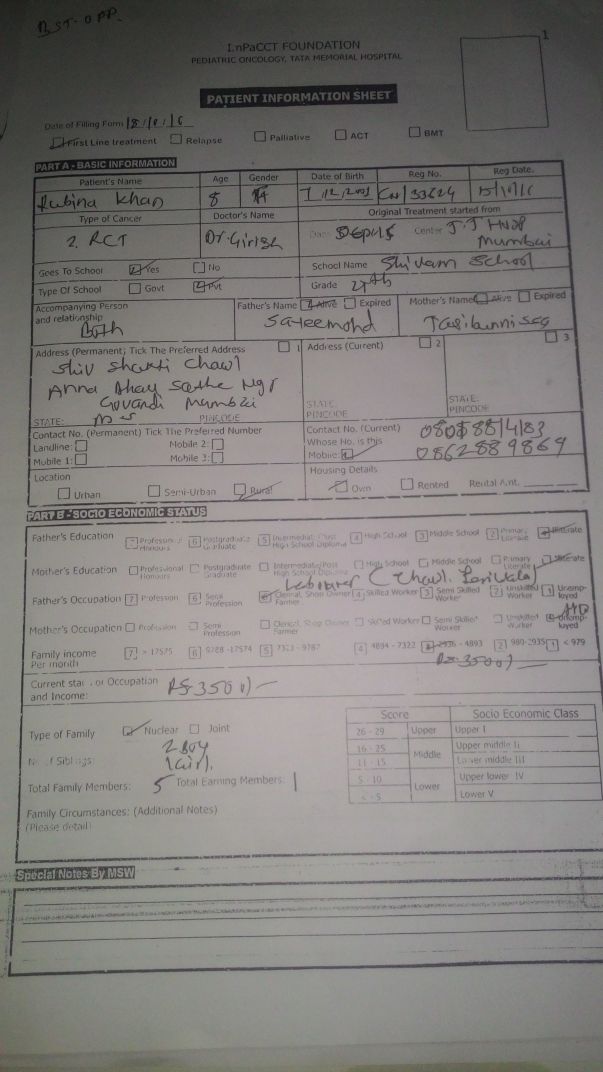 BST-OPP.
1
ImPaCCT FOUNDATION
PEDIATRIC ONCOLOGY, TATA MEMORIAL HOSPITAL
PATIENT INFORMATION SHEET
Date of Filling Form
First Line treatment Relapse Palliative ACT BMT
PART A - BASIC INFORMATION
Patient's Name Age Gender Date of Birth Reg No. Reg Date.
Rubina Khan 8
Type of Cancer Doctor's Name Original Treatment started from
2. RCT Dr. Girish Date Center J.J Hosp
Mumbai
Goes To School Yes No School Name Shivam School
Type Of School Govt Pvt Grade
Accompanying Person and relationship Father's Name Alive Expired Mother's Name Alive Expired
Both
Address (Permanent) Tick The Preferred Address 1 Address (Current) 2 3
Shiv Shakti Chawl
Anna Bhau Sathe Ngr
Govandi Mumbai
STATE: PINCODE STATE: PINCODE STATE: PINCODE
Contact No. (Permanent) Tick The Preferred Number Contact No. (Current)
Landline: Mobile 2: Whose No. is this
Mobile 1: Mobile 3: Mobile: 0862889869
Location Housing Details
Urban Semi-Urban Rural Own Rented Rental Amt.
PART B - SOCIO ECONOMIC STATUS
Father's Education 7 Profession/Honours 6 Postgraduate/Graduate 5 Intermediate/Post High School Diploma 4 High School 3 Middle School 2 Primary Literate Illiterate
Mother's Education Professional Honours Postgraduate Graduate Intermediate/Post High School Diploma High School Middle School Primary Literate Illiterate
Labourer (Chawl
Father's Occupation 7 Profession 6 Semi Profession Clerical, Shop Owner Farmer 4 Skilled Worker 3 Semi Skilled Worker 2 Unskilled Worker 1 Unemployed
Mother's Occupation Profession Semi Profession Clerical, Shop Owner Farmer Skilled Worker Semi Skilled Worker Unskilled Worker Unemployed
Family income Per month 7 > 17575 6 8788 -17574 5 7323 - 9787 4 4894 - 7322 2936 - 4893 2 980-2935 1 < 979
Rs.3500/-
Current status of Occupation and Income: Rs 3500/-
Type of Family Nuclear Joint
No of Siblings: 2 Boy
1 Girl.
Total Family Members: 5 Total Earning Members: 1
Family Circumstances: (Additional Notes)
(Please detail)
Score Socio Economic Class
26 - 29 Upper Upper I
16 - 25 Middle Upper middle II
11 - 15 Lower middle III
5 - 10 Lower Upper lower IV
< - 5 Lower V
Special Notes By MSW